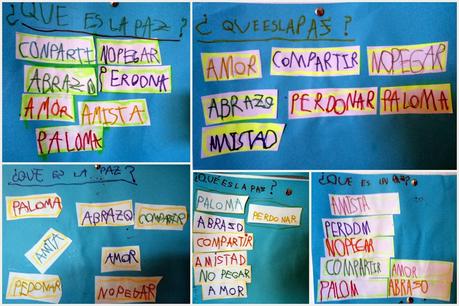 ¿QUE ES LA PAZ
CONPARTI NOPEGAR
ABRAZO PERDONA
AMOR AMISTA
PALOMA
¿QUEESLAPAS?
AMOR COMPARTIR NOPEGAR
ABRAZO PERDONAR PALOMA
MNISTAD
¿QUE ES LA ...PAZ?
PALOMA ABRAZO COMPARTIR
AMOR
PEDONAR NOPEGAR
¿QUE ES LA PAZ?
PALOMA PERDONAR
ABRAZO
COMPARTIR
AMISTAD
NO PEGAR
AMOR
¿QUE ES PAZ?
AMISTA
PERDOM
NOPEGAR
COMPARTIR AMOR
PALOM ABRAZO